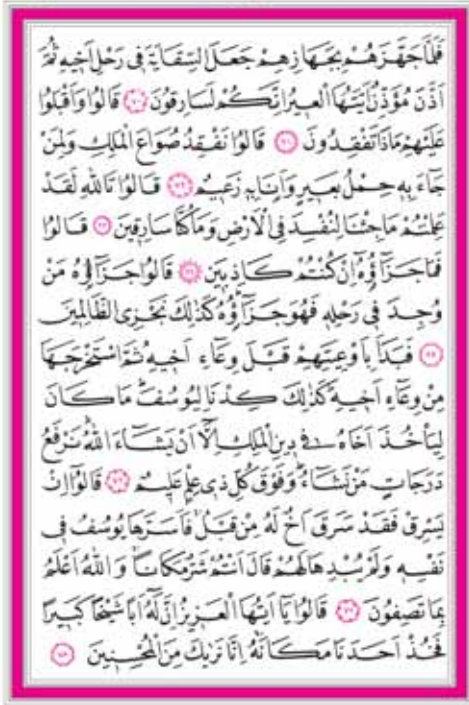 فَلَمَّا جَهَّزَهُمْ بِجَهَازِهِمْ جَعَلَ السِّقَايَةَ فٖى رَحْلِ اَخٖيهِ ثُمَّ
اَذَّنَ مُؤَذِّنٌ اَيَّتُهَا الْعٖيرُ اِنَّكُمْ لَسَارِقُونَ ﴿٧٠﴾ قَالُوا وَاَقْبَلُوا
عَلَيْهِمْ مَاذَا تَفْقِدُونَ ﴿٧١﴾ قَالُوا نَفْقِدُ صُوَاعَ الْمَلِكِ وَلِمَنْ
جَٓاءَ بِهٖ حِمْلُ بَعٖيرٍ وَاَنَا بِهٖ زَعٖيمٌ ﴿٧٢﴾ قَالُوا تَاللّٰهِ لَقَدْ
عَلِمْتُمْ مَا جِئْنَا لِنُفْسِدَ فِى الْاَرْضِ وَمَا كُنَّا سَارِقٖينَ ﴿٧٣﴾ قَالُوا
فَمَا جَزَٓاؤُ۬هُٓ اِنْ كُنْتُمْ كَاذِبٖينَ ﴿٧٤﴾ قَالُوا جَزَٓاؤُ۬هُ مَنْ
وُجِدَ فٖى رَحْلِهٖ فَهُوَ جَزَٓاؤُ۬هُ كَذٰلِكَ نَجْزِى الظَّالِمٖينَ
﴿٧٥﴾ فَبَدَاَ بِاَوْعِيَتِهِمْ قَبْلَ وِعَٓاءِ اَخٖيهِ ثُمَّ اسْتَخْرَجَهَا
مِنْ وِعَٓاءِ اَخٖيهِ كَذٰلِكَ كِدْنَا لِيُوسُفَ مَا كَانَ
لِيَاْخُذَ اَخَاهُ فٖى دٖينِ الْمَلِكِ اِلَّٓا اَنْ يَشَٓاءَ اللّٰهُ نَرْفَعُ
دَرَجَاتٍ مَنْ نَشَٓاءُ وَفَوْقَ كُلِّ ذٖى عِلْمٍ عَلٖيمٌ ﴿٧٦﴾ قَالُٓوا اِنْ
يَسْرِقْ فَقَدْ سَرَقَ اَخٌ لَهُ مِنْ قَبْلُ فَاَسَرَّهَا يُوسُفُ فٖى
نَفْسِهٖ وَلَمْ يُبْدِهَا لَهُمْ قَالَ اَنْتُمْ شَرٌّ مَكَانًا وَاللّٰهُ اَعْلَمُ
بِمَا تَصِفُونَ ﴿٧٧﴾ قَالُوا يَٓا اَيُّهَا الْعَزٖيزُ اِنَّ لَهُٓ اَبًا شَيْخًا كَبٖيرًا
فَخُذْ اَحَدَنَا مَكَانَهُ اِنَّا نَرٰيكَ مِنَ الْمُحْسِنٖينَ ﴿٧٨﴾